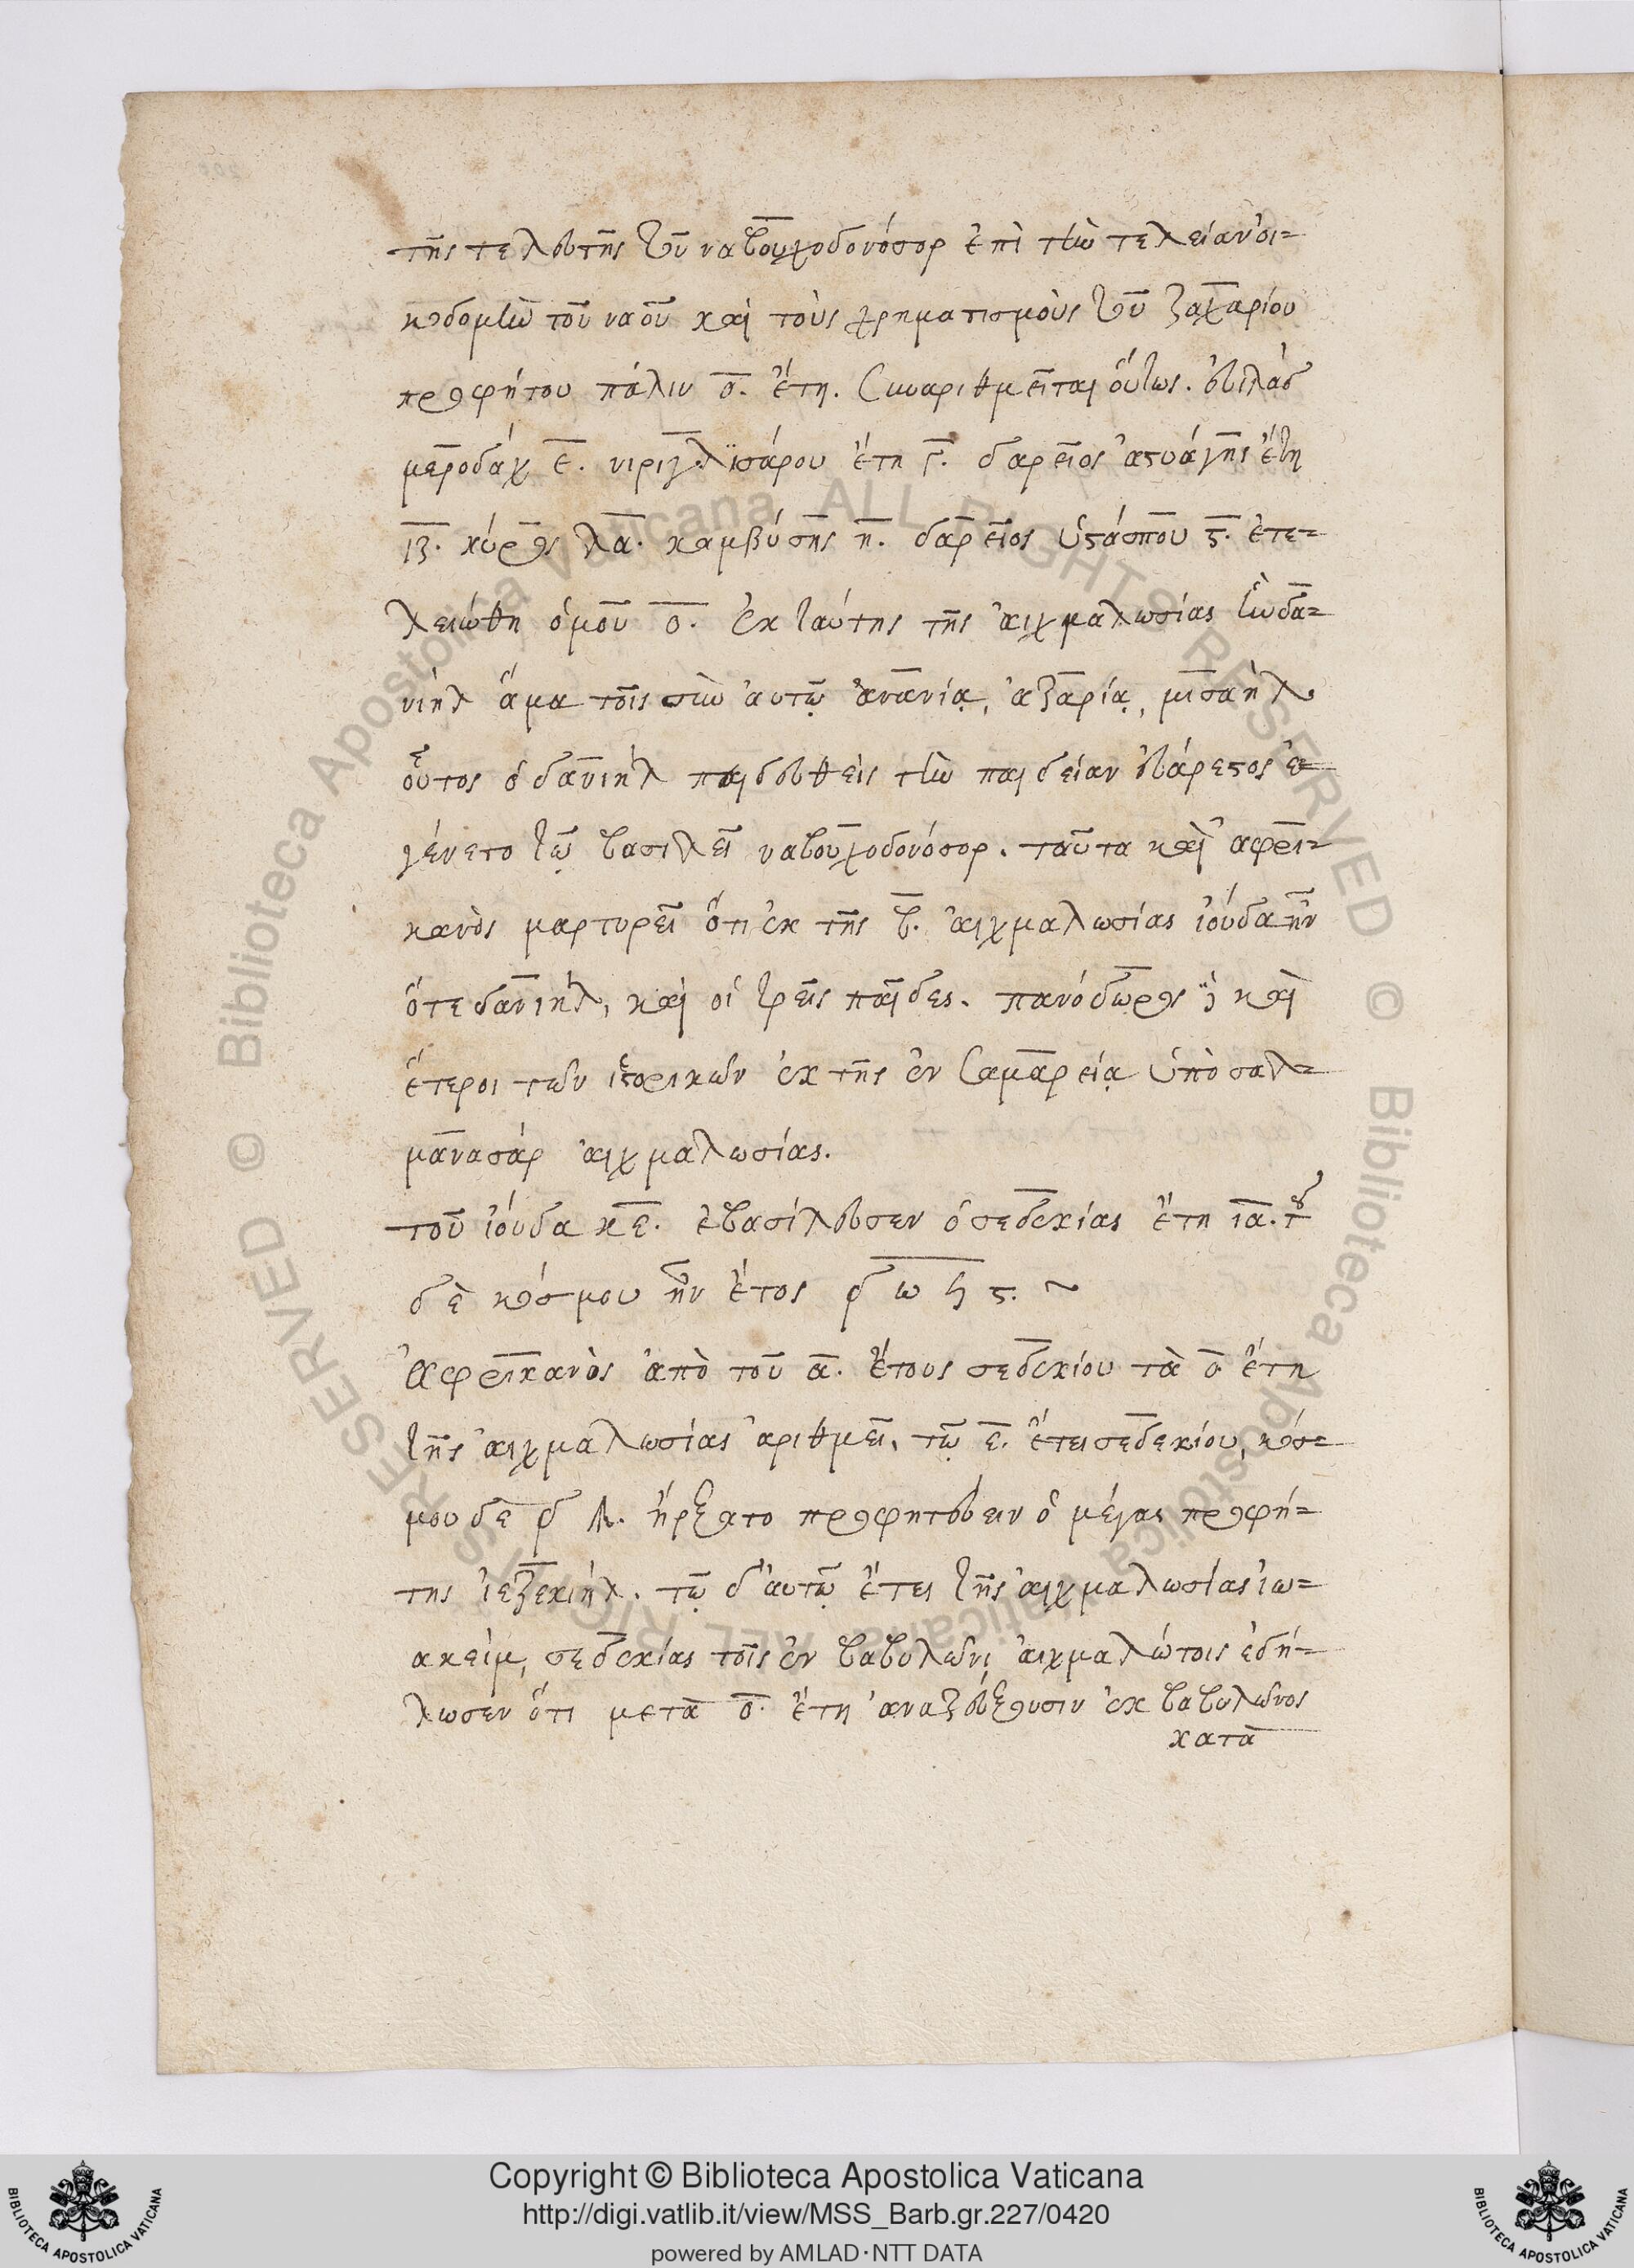 τῆς τελευτῆς τοῦ ναβουχοδονόσορ ἐπὶ τὴν τελείαν οἰ=
κοδομὴν τοῦ ναοῦ καὶ τοὺς χρηματισμοὺς τοῦ ζαχαρίου
προφήτου πάλιν ο. ἔτη. συναριθμεῖται οὕτως. εὐιλὰδ
μεροδάχ ε. νιριγλισάρου ἔτη γ. δαρεῖος ἀστυάγης ἔτη
ιζ. κύρος λα. καμβύσης η. δαρεῖος ὑστάσπου ς. ἐτε=
λειώθη ὁμοῦ ο. ἐκ ταύτης τῆς αἰχμαλωσίας ἦν δα=
νιὴλ ἅμα τοῖς σὺν αὐτῷ ἀνανίᾳ, ἀζαρίᾳ, μισαὴλ.
οὗτος ὁ δανιὴλ παιδευθεὶς τὴν παιδείαν εὐάρεστος ἐ=
γένετο τῷ βασιλεῖ ναβουχοδονόσορ. ταῦτα καὶ ἀφρι=
κανὸς μαρτυρεῖ ὅτι ἐκ τῆς β. αἰχμαλωσίας ἰούδα ἦν
ὅτε δανιὴλ, καὶ οἱ τρεῖς παῖδες. πανόδωρος δὲ καὶ
ἕτεροι τῶν ἱστορικῶν ἐκ τῆς ἐν σαμαρείᾳ ὑπὸ σαλ=
μανασὰρ αἰχμαλωσίας.
τοῦ ἰούδα κε. ἐβασίλευσεν ὁ σεδεκίας ἔτη ια. τοῦ
δὲ κόσμου ἦν ἔτος δ ω ϟ ς. ~
ἀφρικανὸς ἀπὸ τοῦ α. ἔτους σεδεκίου τὰ ο ἔτη
τῆς αἰχμαλωσίας ἀριθμεῖ, τῷ ε. ἔτει σεδεκίου, κόσ=
μου δὲ δ ϡ. ἤρξατο προφητεύειν ὁ μέγας προφή=
της ἰεζεκιὴλ. τῷ δ' αὐτῷ ἔτει τῆς αἰχμαλωσίας ἰω=
ακεὶμ, σεδεκίας τοῖς ἐν βαβυλῶνι αἰχμαλώτοις ἐδή=
λωσεν ὅτι μετὰ ο. ἔτη ἀναζεύξουσιν ἐκ βαβυλῶνος
κατὰ
Copyright © Biblioteca Apostolica Vaticana
http://digi.vatlib.it/view/MSS_Barb.gr.227/0420
powered by AMLAD·NTT DATA
BIBLIOTECA APOSTOLICA VATICANA
BIBLIOTECA APOSTOLICA VATICANA
© Biblioteca Apostolica Vaticana ALL RIGHTS RESERVED
© Biblioteca Apostolica Vaticana ALL RIGHTS RESERVED